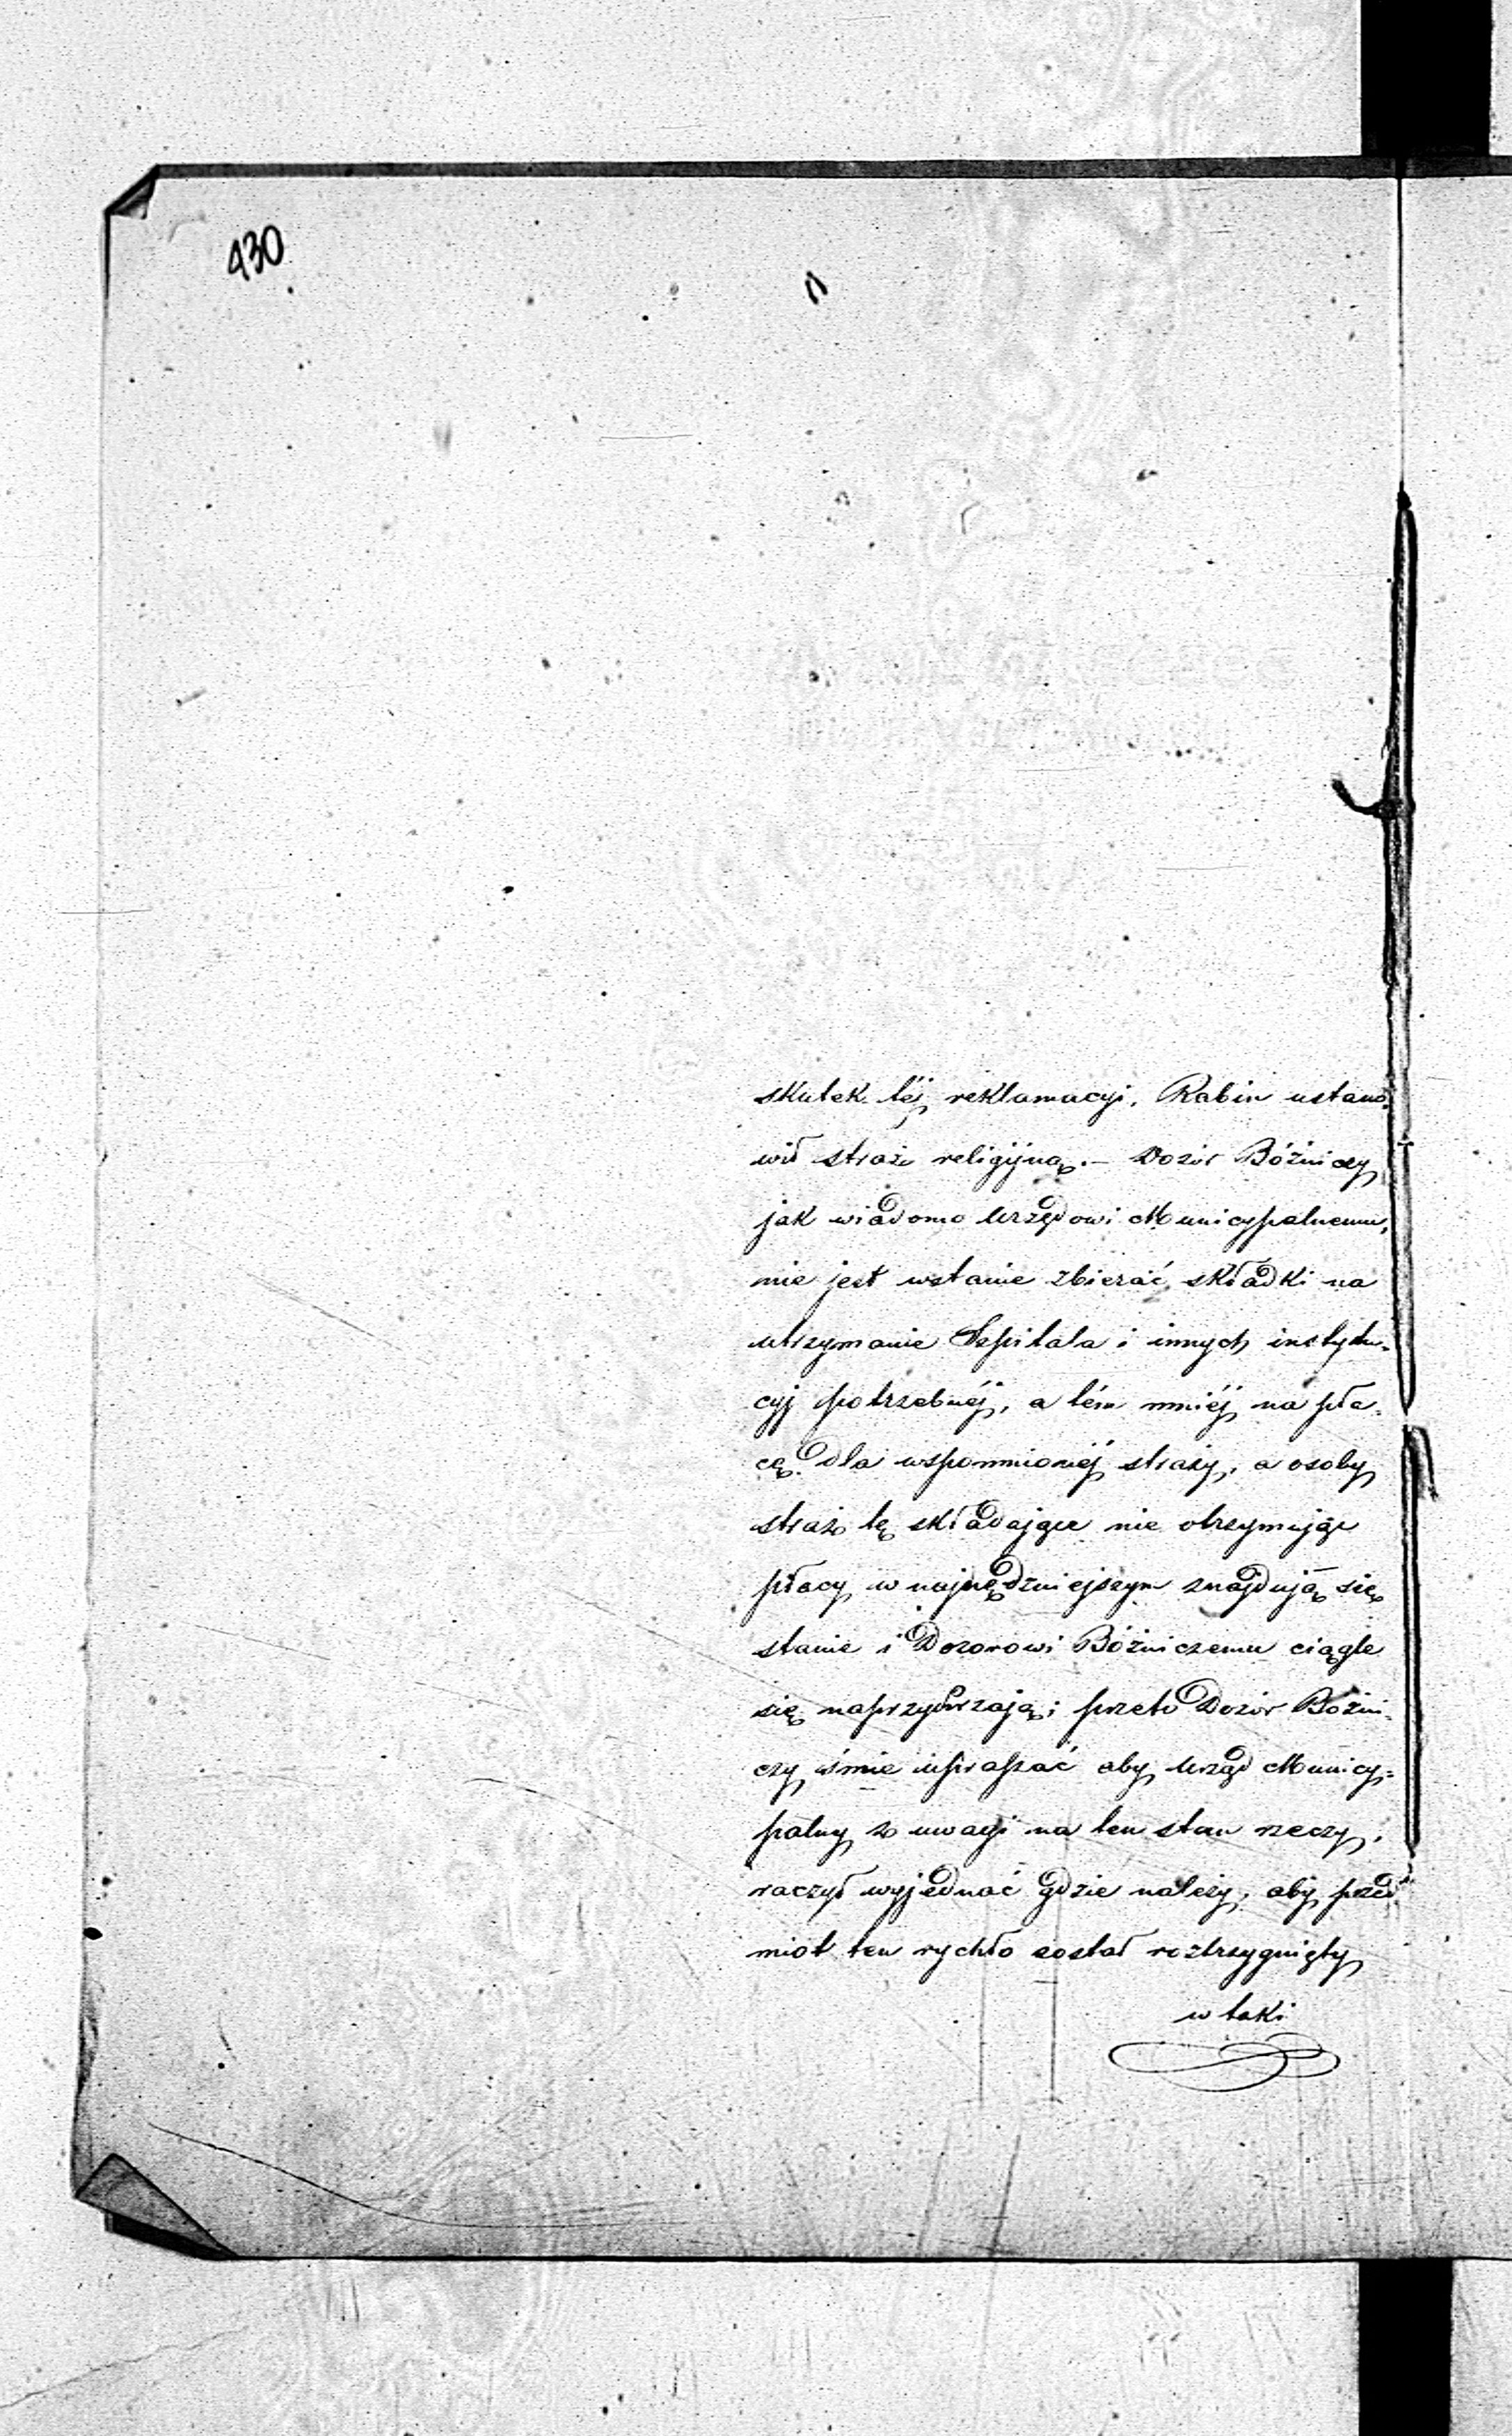 430
skutek téj reklamacyi, Rabin ustano=
wił straż religijną. – Dozór Bóżniczy
jak wiadomo Urzędowi Municypalnemu,
nie jest wstanie zbierać składki na
utrzymanie Szpitala i innych instytu=
cyj potrzebnéj, a tém mniéj na pła=
cę dla wspomnionéj straży, a osoby
straż tę składające nie otrzymując
płacy w najnędzniejszym znajdują się
stanie i Dozorowi Bóżniczemu ciągle
się naprzykrzają; przeto Dozór Bóżni=
czy śmie upraszać aby Urząd Municy=
palny z uwagi na ten stan rzeczy,
raczył wyjednać gdzie należy, aby przed=
miot ten rychło został roztrzygnięty
w taki